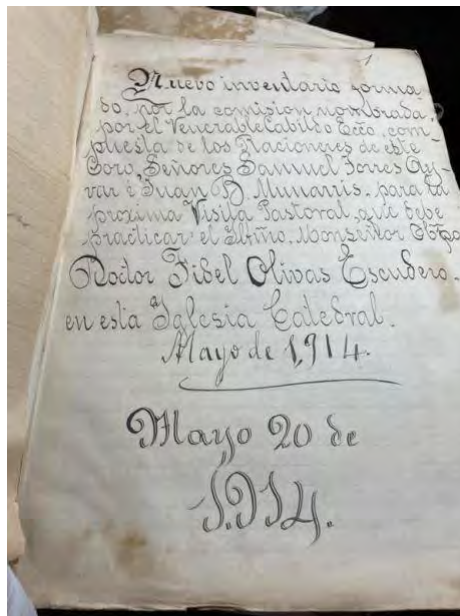 Nuevo inventario forma-
do, por la comision nombrada,
por el Venerable Cabildo Ecco, com-
puesta de los Racioneros de este
Coro, Señores Samuel Torres Ay-
var é Juan D. Munarris, para la
proxima Visita Pastoral, que debe
practicar el Iltmo. Monseñor Obpo
Doctor Fidel Olivas Escudero.
en esta Iglesia Catedral.
Mayo de 1,914.
Mayo 20 de
1.914.